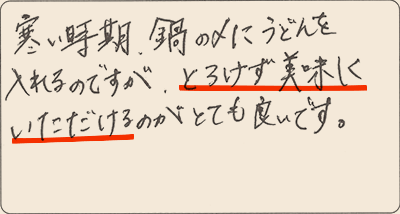 寒い時期、鍋の〆にうどんを
入れるのですが、とろけず美味しく
いただけるのがとても良いです。